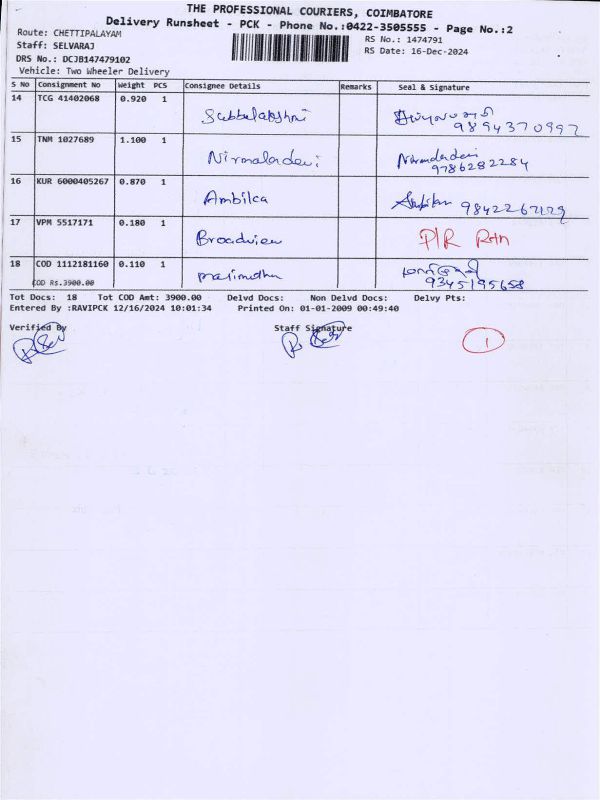 THE PROFESSIONAL COURIERS, COIMBATORE
Delivery Runsheet - PCK - Phone No.:0422-3505555 - Page No.:2
Route: CHETTIPALAYAM
RS No.: 1474791
Staff: SELVARAJ
RS Date: 16-Dec-2024
DRS No.: DCJB147479102
Vehicle: Two Wheeler Delivery
S No Consignment No Weight PCS Consignee Details Remarks Seal & Signature
14 TCG 41402068 0.920 1 Subbulakshmi
9894370997
15 TNM 1027689 1.100 1 Nirmaladevi Nirmaladevi
9786282284
16 KUR 6000405267 0.870 1 Ambilca 9842267129
17 VPM 5517171 0.180 1 Broadview P/R Rtn
18 COD 1112181160 0.110 1 Marimuthu
COD Rs.3900.00 9345195658
Tot Docs: 18 Tot COD Amt: 3900.00 Delvd Docs: Non Delvd Docs: Delvy Pts:
Entered By :RAVIPCK 12/16/2024 10:01:34 Printed On: 01-01-2009 00:49:40
Verified By Staff Signature
1